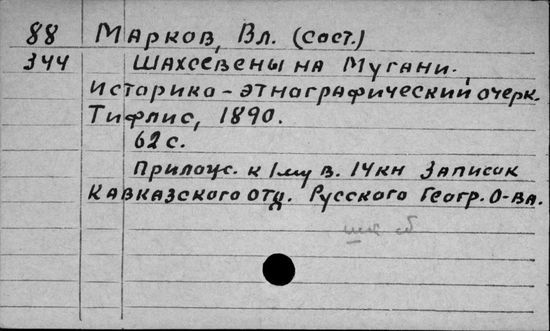 88 Марков, Вл. (сост.)
344 Шахсевены на Мугани.
Историко-этнографический очерк.
Тифлис, 1890.
62 с.
Прилож. к 1му в. 14кн Записок
Кавказского отд. Русского Геогр. О-ва.